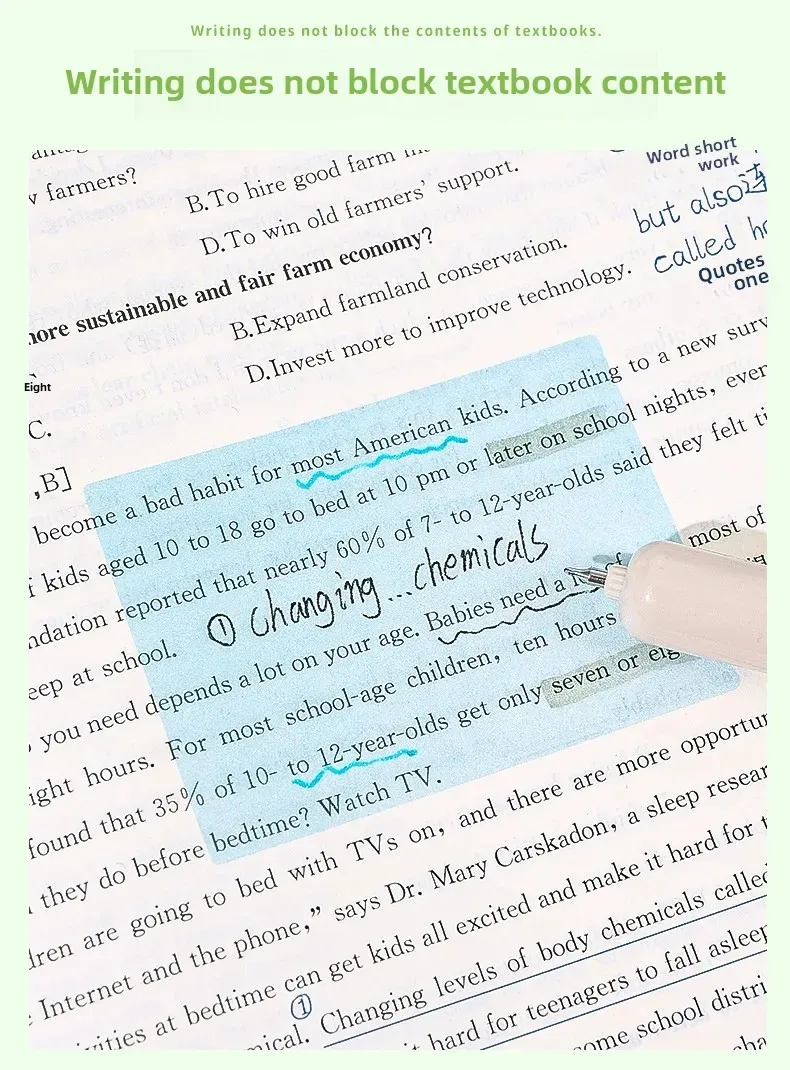 Writing does not block the contents of textbooks.
Writing does not block textbook content
farmers?
B.To hire good farm
D.To win old farmers' support.
Word short
work
but also
called
Quotes
one
more sustainable and fair farm economy?
B.Expand farmland conservation.
D.Invest more to improve technology.
Eight
C.
,B]
become a bad habit for most American kids. According to a new
kids aged 10 to 18 go to bed at 10 pm or later on school nights, even
reported that nearly 60% of 7- to 12-year-olds said they felt
① changing...chemicals
at school. most of
you need depends a lot on your age. Babies need a
hours. For most school-age children, ten hours
found that 35% of 10- to 12-year-olds get only seven or
they do before bedtime? Watch TV.
are going to bed with TVs on, and there are more
Internet and the phone," says Dr. Mary Carskadon, a sleep
at bedtime can get kids all excited and make it hard for
①
Changing levels of body chemicals called
hard for teenagers to fall asleep
some school